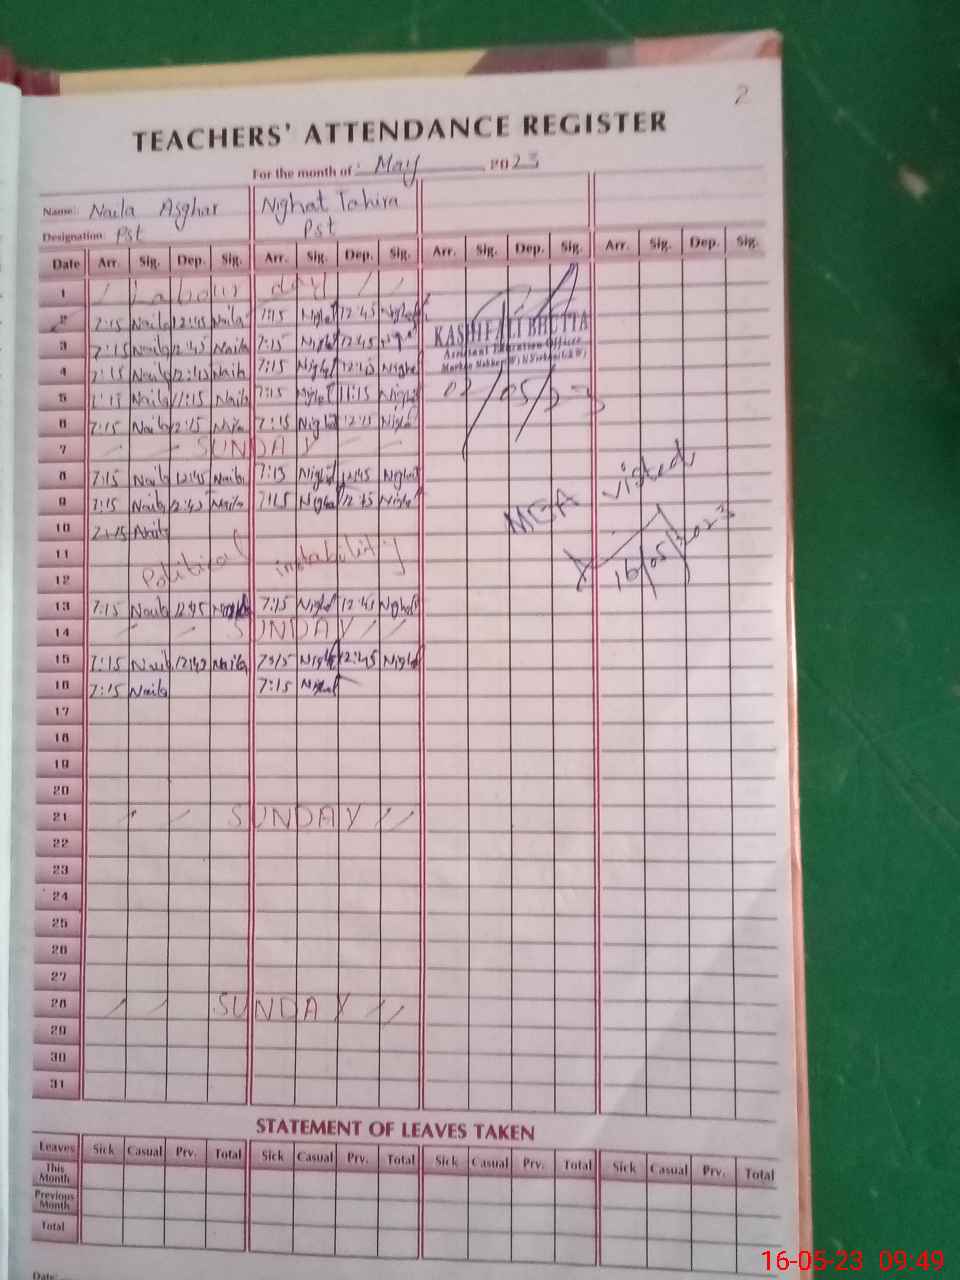 2
TEACHERS' ATTENDANCE REGISTER
For the month of: May 2023
Name: Naila Asghar Nighat Tahira
Designation: Pst Pst
Date Arr. Sig. Dep. Sig. Arr. Sig. Dep. Sig. Arr. Sig. Dep. Sig. Arr. Sig. Dep. Sig.
1 Labour day
2 7:15 Naila 12:45 Naila 7:15 Night 12:45 Night
KASHIF ALI BHUTTA
3 7:15 Naila 12:45 Naila 7:15 Night 12:45
Assistant Education Officer
4 7:15 Naila 12:45 Naila 7:15 Night 12:45 Night
5 7:15 Naila 11:15 Naila 7:15 Night 11:15 Night
6 7:15 Naila 12:45 Naila 7:15 Night 12:45 Night
7 SUNDAY
8 7:15 Naila 12:45 Naila 7:15 Night 12:45 Night
MEA visited
9 7:15 Naila 12:45 Naila 7:15 Night 12:45 Night
10 7:15 Naila
16/05/2023
11 Political instability
12
13 7:15 Naila 12:45 7:15 Night 12:45 Night
14 SUNDAY
15 7:15 Naila 12:45 Naila 7:15 Night 12:45 Night
16 7:15 Naila 7:15 Night
17
18
19
20
21 SUNDAY
22
23
24
25
26
27
28 SUNDAY
29
30
31
STATEMENT OF LEAVES TAKEN
Leaves Sick Casual Prv. Total Sick Casual Prv. Total Sick Casual Prv. Total Sick Casual Prv. Total
This Month
Previous Month
Total
Date:
16-05-23 09:49